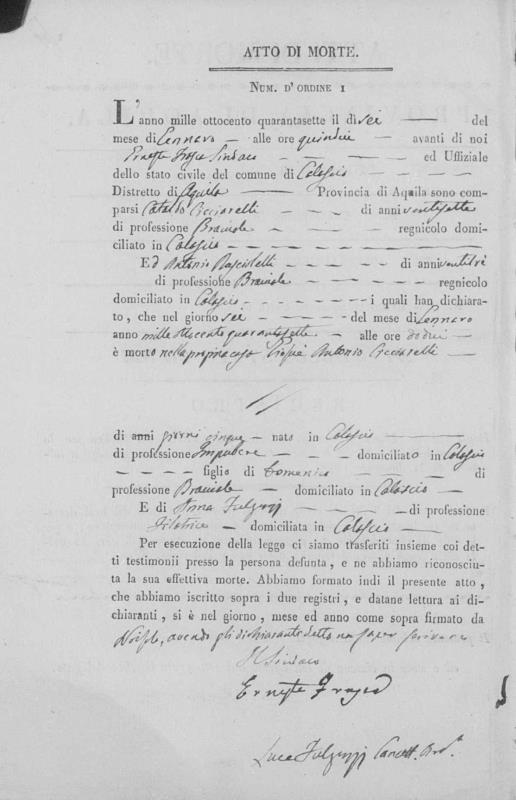 ATTO DI MORTE.
NUM. D'ORDINE 1
L'anno mille ottocento quarantasette il dì sei — del
mese di Gennaro — alle ore quindici — avanti di noi
Sindaco — — — ed Uffiziale
dello stato civile del comune di — — — —
Distretto di Aquila — Provincia di Aquila sono com-
parsi Cataldo Cicciarelli — — di anni ventisette
di professione Bracciale — — — regnicolo domi-
ciliato in — — — — —
Ed Antonio — — di anni ventitrè
di professione Bracciale — — — regnicolo
domiciliato in — — — — i quali han dichiara-
to, che nel giorno sei — — — del mese di Gennaro
anno mille ottocento quarantasette — alle ore dodici —
è morto nella propria casa Antonio Cicciarelli —
di anni giorni cinque — nato in —
di professione — — domiciliato in
— — — — figlio di Domenico — — — di
professione Bracciale — domiciliato in —
E di Anna — — — di professione
Filatrice — domiciliata in — —
Per esecuzione della legge ci siamo trasferiti insieme coi det-
ti testimonii presso la persona defunta, e ne abbiamo riconosciu-
ta la sua effettiva morte. Abbiamo formato indi il presente atto,
che abbiamo iscritto sopra i due registri, e datane lettura ai di-
chiaranti, si è nel giorno, mese ed anno come sopra firmato da
Noi, avendo gli dichiaranti detto non saper scrivere
Il Sindaco
Luca